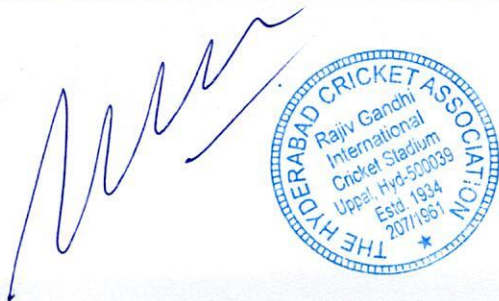 THE HYDERABAD CRICKET ASSOCIATION
Rajiv Gandhi
International
Cricket Stadium
Uppal, Hyd-500039
Estd. 1934
207/1961